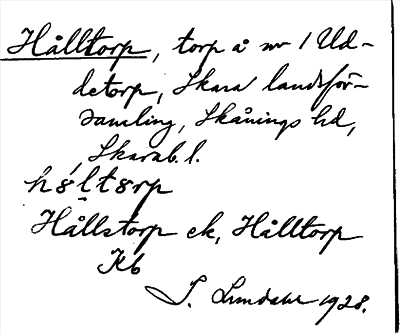 Hålltorp, torp å nr 1 Ud-
detorp, Skara landsför-
samling, Skånings hd,
Skarab. l.
hǻltɵrp
Hållstorp ek, Hålltorp
Kb
I. Lundahl 1928.